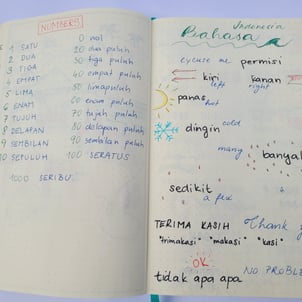 NUMBERS
1 SATU 0 nol
2 DUA 20 dua puluh
3 TIGA 30 tiga puluh
4 EMPAT 40 empat puluh
5 LIMA 50 limapuluh
6 ENAM 60 enam puluh
7 TUJUH 70 tujuh puluh
8 DELAPAN 80 delapan puluh
9 SEMBILAN 90 sembilan puluh
10 SEPULUH 100 SERATUS
1000 SERIBU
Indonesia
Bahasa
excuse me permisi
kiri kanan
left right
panas hot
cold
dingin
many banyak
sedikit
a few
TERIMA KASIH Thank
"trimakasi" "makasi" "kasi"
OK
tidak apa apa NO PROBLE